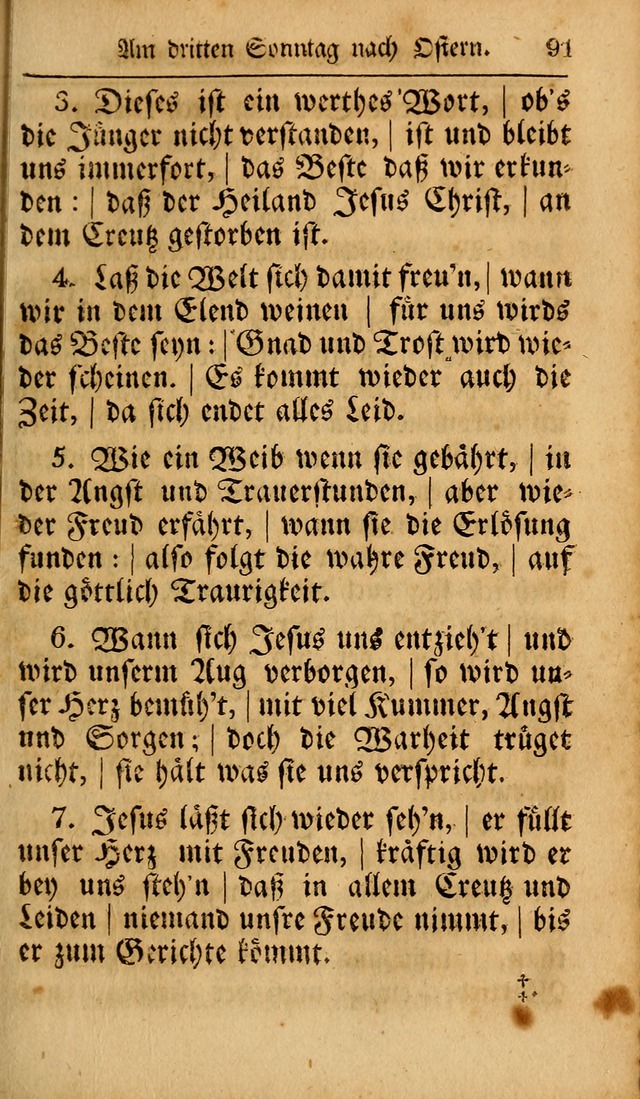 Am dritten Sonntag nach Ostern. 91
3. Dieses ist ein werthes Wort, | ob's
die Jünger nicht verstanden, | ist und bleibt
uns immerfort, | das Beste daß wir erkun-
den : | daß der Heiland Jesus Christ, | an
dem Creutz gestorben ist.
4. Laß die Welt sich damit freu'n, | wann
wir in dem Elend weinen | für uns wirds
das Beste seyn : | Gnad und Trost wird wie-
der scheinen. | Es kommt wieder auch die
Zeit, | da sich endet alles Leid.
5. Wie ein Weib wenn sie gebährt, | in
der Angst und Trauerstunden, | aber wie-
der Freud erfährt, | wann sie die Erlösung
funden : | also folgt die wahre Freud, | auf
die göttlich Traurigkeit.
6. Wann sich Jesus uns entzieh't | und
wird unserm Aug verborgen, | so wird un-
ser Herz bemüh't, | mit viel Kummer, Angst
und Sorgen; | doch die Warheit trüget
nicht, | sie hält was sie uns verspricht.
7. Jesus läßt sich wieder seh'n, | er füllt
unser Herz mit Freuden, | kräftig wird er
bey uns steh'n | daß in allem Creutz und
Leiden | niemand unsre Freude nimmt, | bis
er zum Gerichte kömmt.